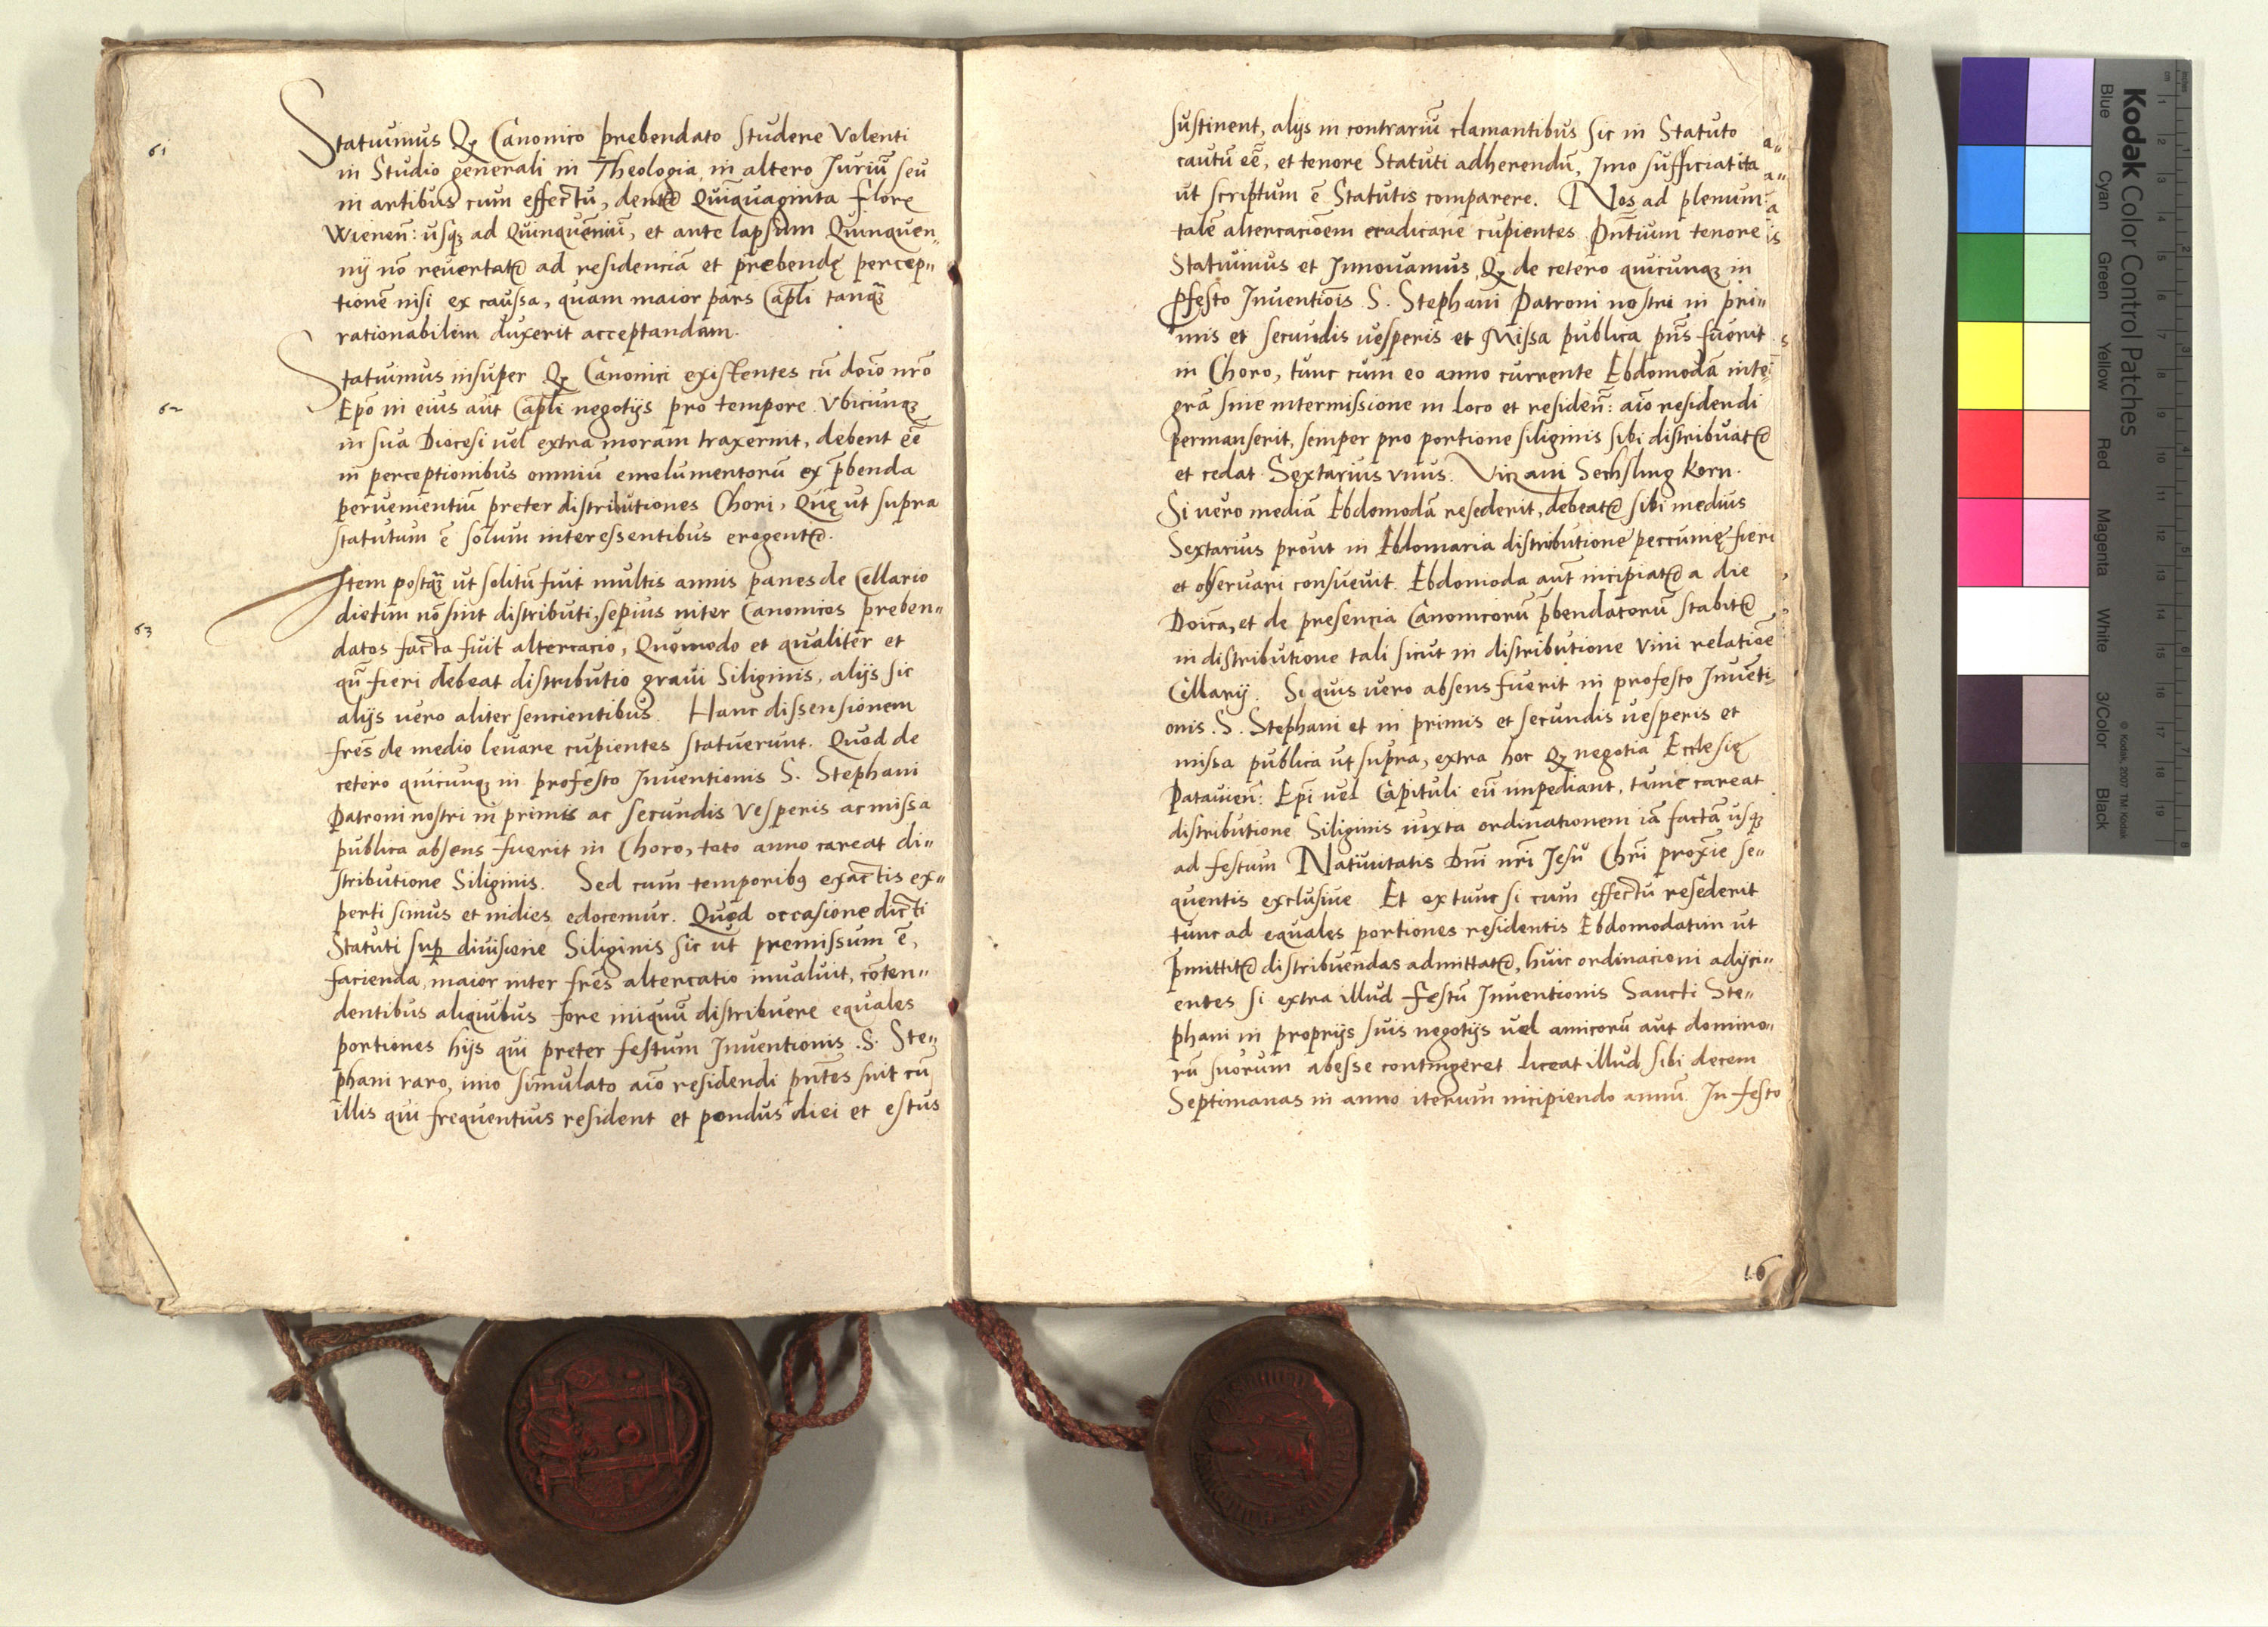 61
Statuimus Qꝫ Canonico prebendato studere Volenti
in Studio generali in Theologia, in altero Juriū seu
in artibus cum effectu, dentᷣ Quinquaginta flore
Wienen̄: usqꝫ ad Quinquēniū, et ante lapsum Quinquen„
nij nō revertatᷣ ad residenciā et prebendę percep„
tionē nisi ex caussa, quam maior pars Capli tanqꝫ
rationabilem duxerit acceptandam.
62
Statuimus insuper Qꝫ Canonici existentes cū doīo nrō
Epō in eius aut Capli negotijs pro tempore Vbicunqꝫ
in sua Diocesi uel extra moram traxerint, debent eē
in perceptionibus omniū emolumentorū ex p̄benda
pervenientiū preter distributiones Chori, Quę ut supra
statutum ē solum interessentibus erogentᷣ.
63
Item postqꝫ ut solitū fuit multis annis panes de Cellario
dietim nō sint distributi, sepius inter Canonicos preben„
datos facta fuit altercacio, Quomodo et qualiter et
qn̄ fieri debeat distributio graui Siliginis, alijs sic
alijs vero aliter sencientibus. Hanc dissensionem
frēs de medio levare cupientes statuerunt. Quod de
cetero quicunqꝫ in profesto Inventionis S. Stephani
Patroni nostri in primis ac secundis Vesperis ac missa
publica absens fuerit in Choro, toto anno careat di„
stributione Siliginis. Sed cum temporibꝯ exactis ex„
perti simus et indies edocemur. Quod occasione dicti
Statuti suꝑ divisione Siliginis sic ut premissum ē,
facienda, maior inter frēs altercatio invaluit, cōten„
dentibus aliquibus fore iniquū distribuere equales
portiones hijs qui preter festum Inventionis .S. Ste„
phani raro, imo simulato aīo residendi pn̄tes sint cū
illis qui frequentius resident et pondus diei et estus
sustinent, alijs in contrariū clamantibus sic in Statuto
cautū eē, et tenore Statuti adherendū, Imo sufficiat ita
ut scriptum ē Statutis comparere. Nos ad plenum
talē altercacioēm eradicare cupientes Pn̄tium tenore
Statuimus et Innouamus, Qꝫ de cetero quicunqꝫ in
ꝓfesto Inventiōis S. Stephani Patroni nostri in pri„
mis et secundis uesperis et Missa publica pn̄s fuerit
in Choro, tunc cum eo anno currente Ebdomodā inte„
grā sine intermissione in loco et residen̄: aīo residendi
permanserit, semper pro portione siliginis sibi distribuatᷣ
et cedat Sextarius vnus. Viꝫ ain Sechsling Korn.
Si uero mediā Ebdomodā resederit, debeatᷣ sibi medius
Sextarius prout in Ebdomaria distributione peccunię fieri
et observari consuevit. Ebdomoda aut̄ incipiatᷣ a die
Doīca, et de presencia Canonicorū p̄bendatorū stabitᷣ
in distributione tali sicut in distributione Vini relatiōe
Cellarij. Si quis uero absens fuerit in profesto Invēti„
onis .S. Stephani et in primis et secundis uesperis et
missa publica ut supra, extra hoc Qꝫ negotia Ecclesię
Patauien̄: Ep̄i uel Capituli eū impediant, tunc careat
distributione Siliginis iuxta ordinationem iā factā usqꝫ
ad festum Natiuitatis Dn̄i nr̄i Jesu Chr̄i proxīe se„
quentis exclusiue Et ex tunc si cum effectu resederit
tunc ad equales portiones residentis Ebdomodatim ut
p̄mittitᷣ distribuendas admittatᷣ, huic ordinacioni adijci„
entes si extra illud festū Inventionis Sancti Ste„
phani in proprijs suis negotijs uel amicorū aut domino„
rū suorum abesse contingeret liceat illud sibi decem
Septimanas in anno iterum incipiendo annū In festo
16
Kodak Color Control Patches
Blue Cyan Green Yellow Red Magenta White 3/Color Black
© Kodak, 2007 TM: Kodak